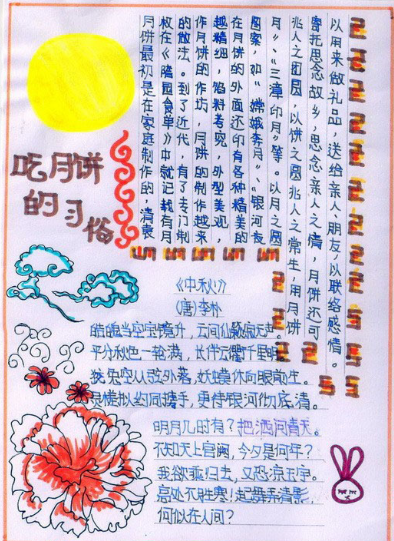 吃月饼
的习俗
月饼最初是在家庭制作的，清袁
枚在《随园食单》中就记载有月
的做法。到了近代，有了专门制
作月饼的作坊，月饼的制作越来
越精细，馅料考究，外型美观，
在月饼的外面还印有各种精美的
图案，如“嫦娥奔月”、“银河夜
月”、“三潭印月”等。以月之圆
兆人之团圆，以饼之圆兆人之常生，用月饼
寄托思念故乡，思念亲人之情，月饼还可
以用来做礼品，送给亲人、朋友以联络感情。
《中秋》
(唐)李朴
皓魄当空宝镜升，云间仙籁寂无声。
平分秋色一轮满，长伴云衢千里明。
狡兔空从弦外落，妖蟆休向眼前生。
灵槎拟约同携手，更待银河彻底清。
明月几时有？把酒问青天。
不知天上宫阙，今夕是何年？
我欲乘归去，又恐凉玉宇。
高处不胜寒！起舞弄清影，
何似在人间？